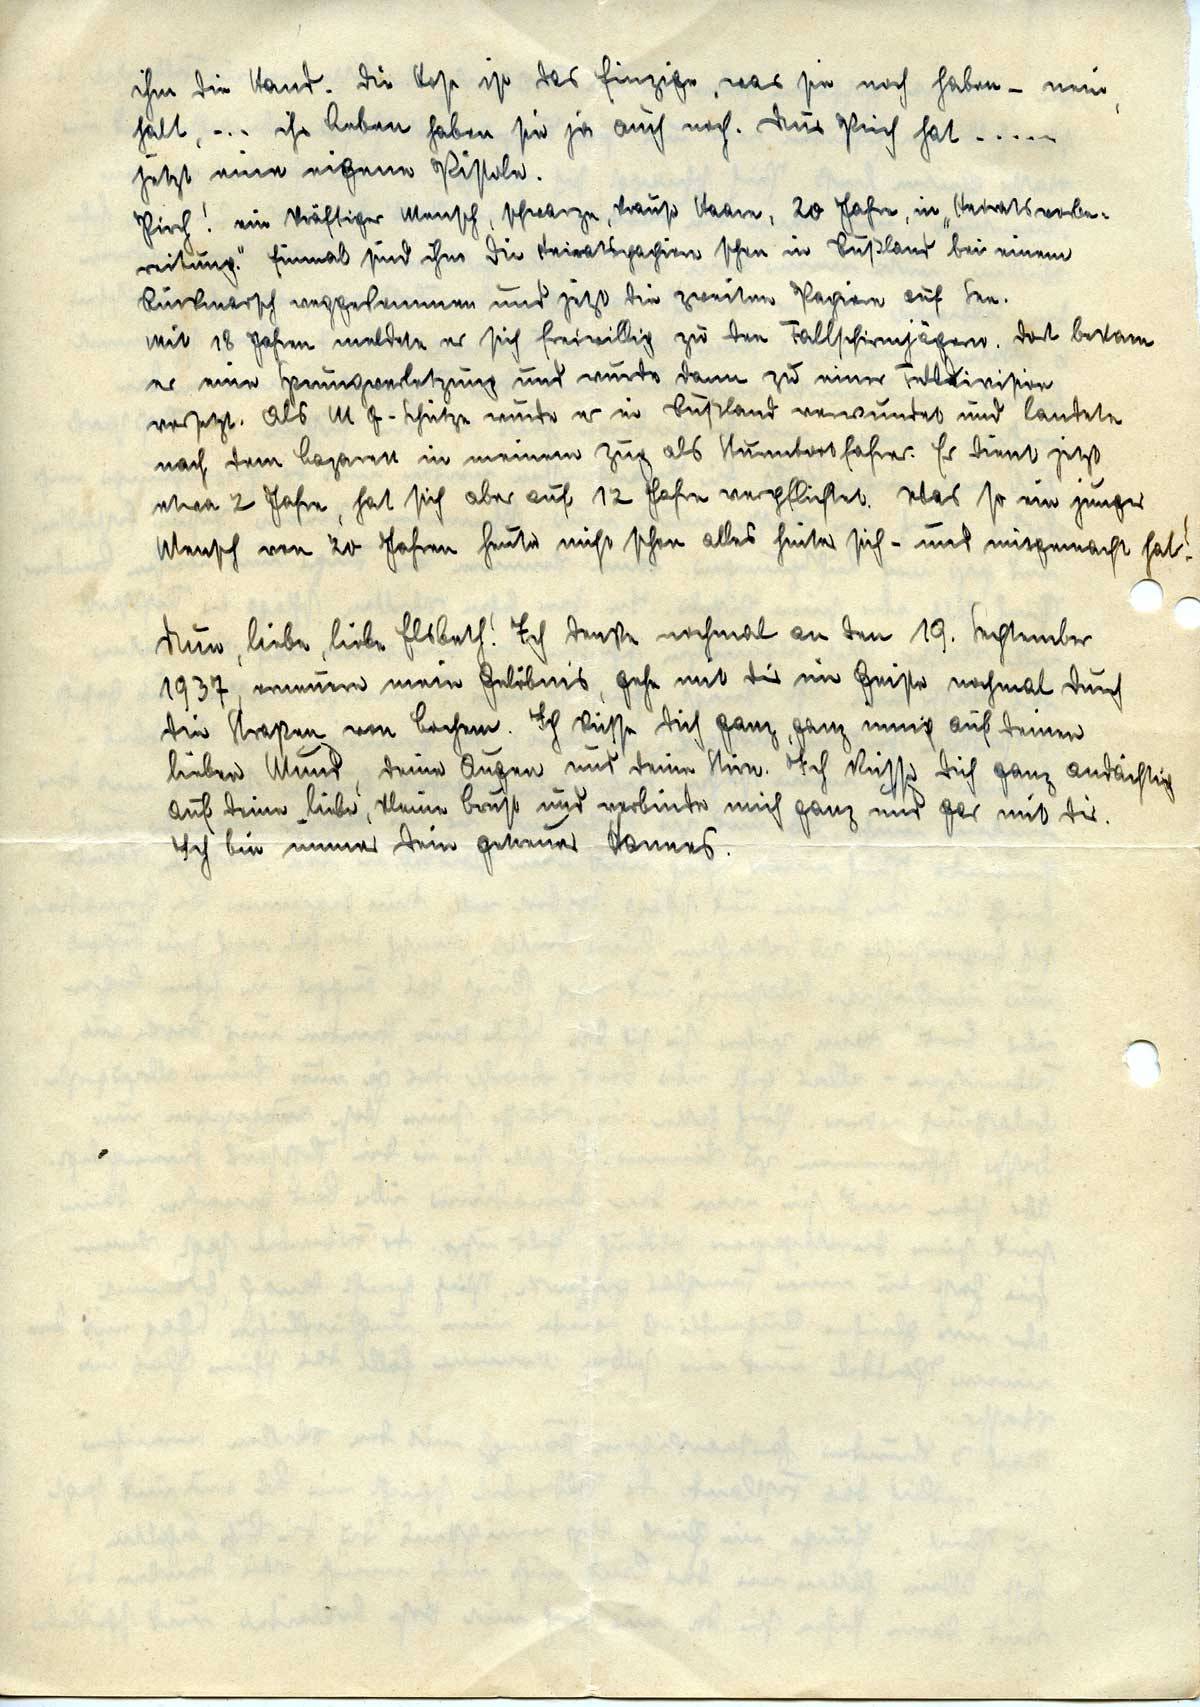 ihm die Hand. Die Hose ist das Einzige, was sie noch haben – nein,
halt, -.. ihr Leben haben sie ja auch noch. Nur Pirch hat .....
jetzt eine eigene Pistole.
Pirch! ein kräftiger Mensch, schwarze, krause Haare, 20 Jahre, in "Heiratsvorbe-
reitung". Einmal sind ihm die Heiratspapiere schon in Rußland bei einem
Rückmarsch weggekommen und jetzt die zweiten Papiere auf See.
Mit 18 Jahren meldete er sich freiwillig zu den Fallschirmjägern. Dort bekam
er eine Sprungverletzung und wurde dann zu einer Felddivision
versetzt. Als M G-Schütze wurde er in Rußland verwundet und landete
nach dem Lazarett in meinem Zug als Sturmbootfahrer. Er dient jetzt
etwa 2 Jahre, hat sich aber auf 12 Jahre verpflichtet. Was so ein junger
Mensch von 20 Jahren heute nicht schon alles hinter sich – und mitgemacht hat!
Nun, liebe, liebe Elsbeth! Ich denke nochmal an den 19. September
1937, erneuere mein Gelöbnis, gehe mit Dir im Geiste nochmal durch
die Straßen von Cochem. Ich küsse Dich ganz, ganz innig auf Deinen
lieben Mund, Deine Augen und Deine Stirn. Ich küsse Dich ganz andächtig
auf Deine liebe, kleine Brust und verbinde mich ganz und gar mit Dir.
Ich bin immer Dein getreuer Hannes.